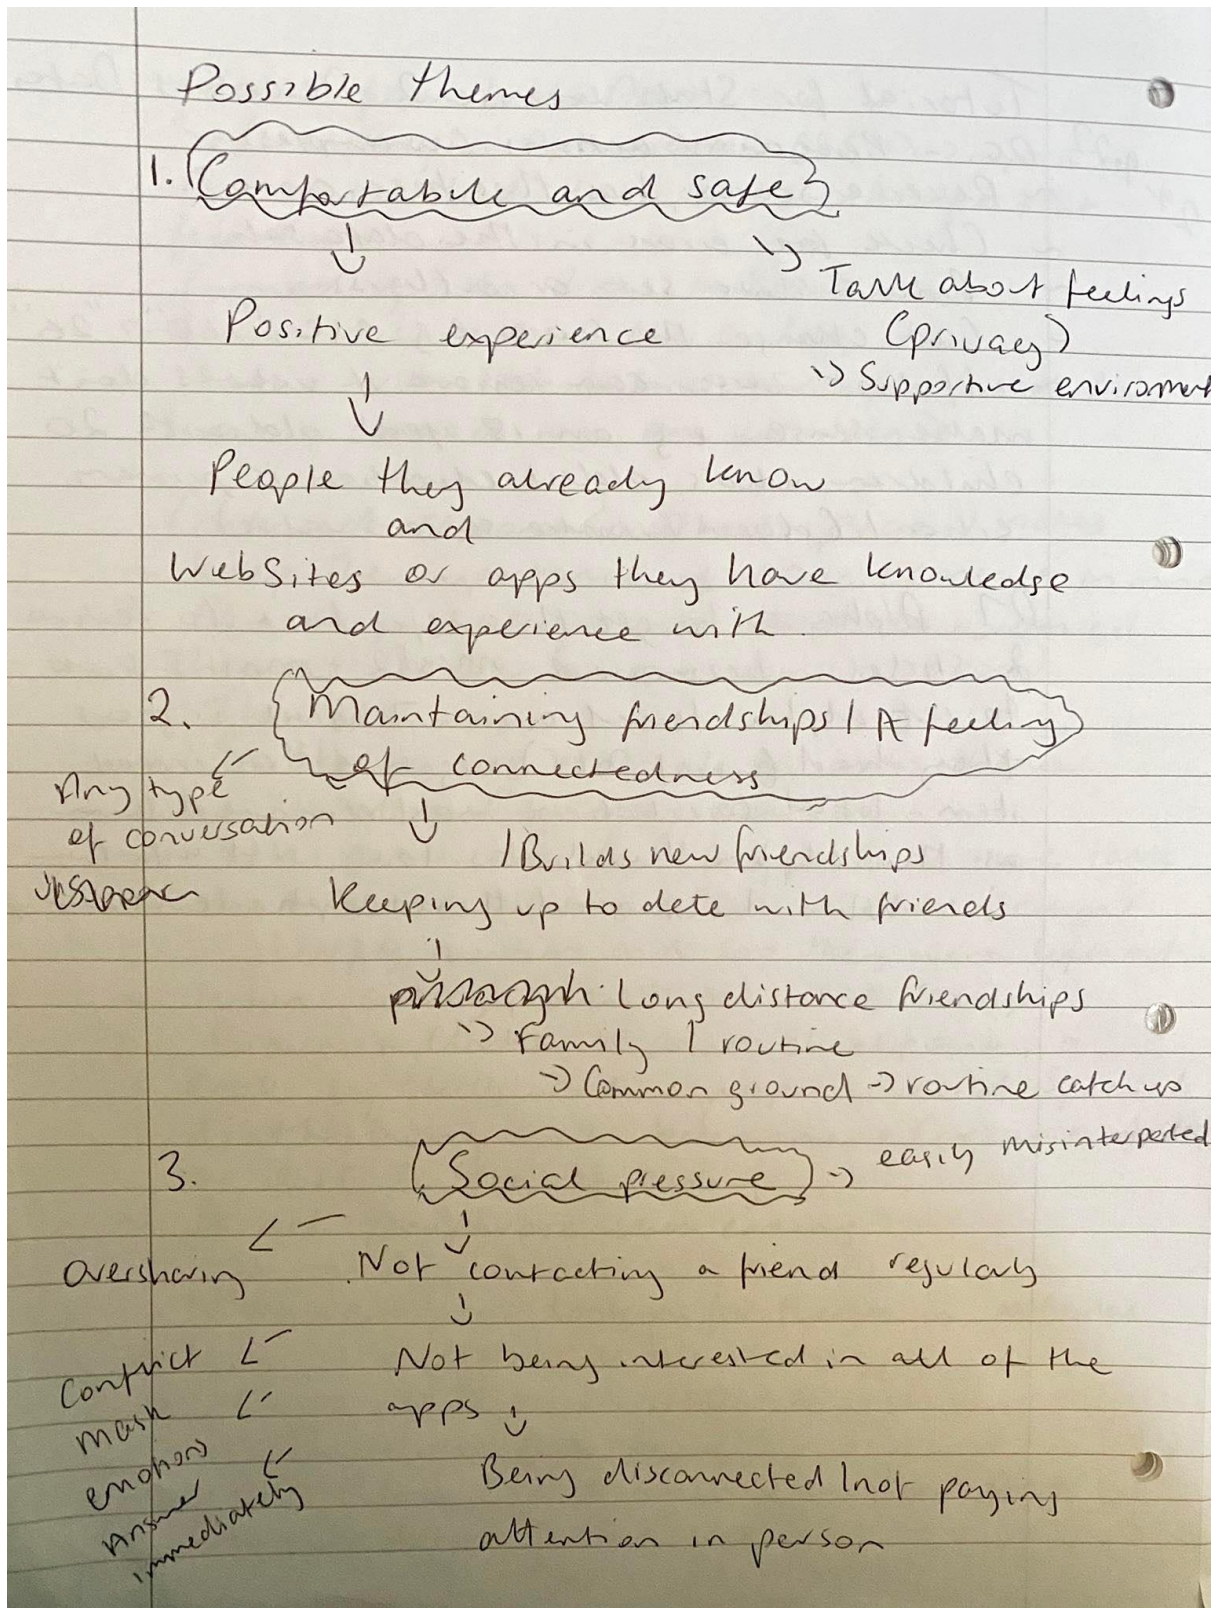 Possible themes
1. Comfortabule and safe
Talk about feelings
(privacy)
Supportive environment
Positive experience
People they already know
and
Websites or apps they have knowledge
and experience with
2. Maintaining friendships / A feeling
of connectedness
Any type
of conversation
/ Builds new friendships
Keeping up to dete with friends
Long distance friendships
Family / routine
Common ground → routine catch up
3. Social pressure → easily misinterperted
Oversharing
Not contacting a friend regularly
Conflict
Not being interested in all of the
apps
mask
emotions
Answer
immediately
Being disconnected / not paying
attention in person